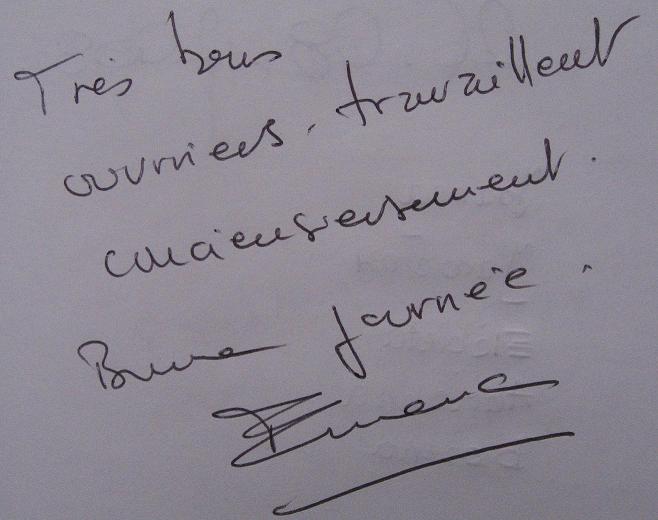 Très bons
ouvriers. travaillent
conciensieusement.
Bonne journée.